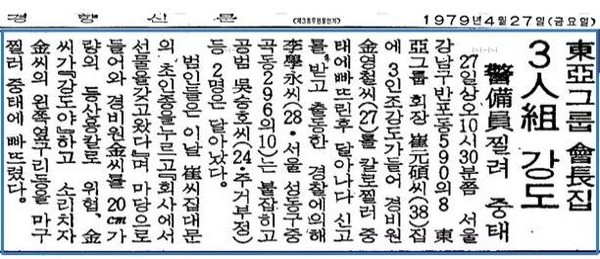 경향신문
(제3종우편물인가)
1979년4월27일(금요일)
東亞그룹 會長집
3人組 강도
警備員찔려 중태
27일상오10시30분쯤 서울
강남구반포동590의8 東
亞그룹 회장 崔元碩씨(38)집
에 3인조강도가들어 경비원
金영철씨(27)를 칼로찔러 중
태에빠뜨린후 달아나다 신고
를 받고 출동한 경찰에의해
李學永씨(28·서울 성동구중
곡동296의10)는 붙잡히고
공범 吳승호씨(24·주거부정)
등 2명은 달아났다.
범인들은 이날 崔씨집대문
의 초인종을누르고『회사에서
선물을갖고왔다』며 마당으로
들어와 경비원金씨를 20cm가
량의 등산용칼로 위협, 金
씨가『강도야』하고 소리치자
金씨의 왼쪽옆구리등을 마구
찔러 중태에 빠뜨렸다.